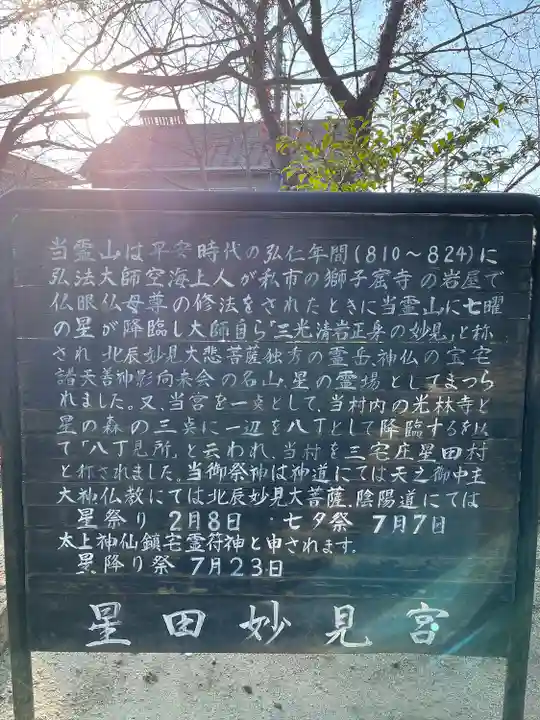 当霊山は平安時代の弘仁年間(810～824)に
弘法大師空海上人が私市の獅子窟寺の岩屋で
仏眼仏母尊の修法をされたときに当霊山に七曜
の星が降臨し大師自ら「三光清岩正身の妙見」と称
され、北辰妙見大悲菩薩独秀の霊岳、神仏の宝宅
諸天善神影向来会の名山、星の霊場としてまつら
れました。又、当宮を一点として、当村内の光林寺と
星の森の三点に一辺を八丁として降臨するを以
て「八丁見所」と云われ、当村を三宅庄星田村
と称されました。当御祭神は神道にては天之御中主
大神、仏教にては北辰妙見大菩薩、陰陽道にては
星祭り 2月8日 ・七夕祭 7月7日
太上神仙鎮宅霊符神と申されます。
星降り祭 7月23日
星田妙見宮